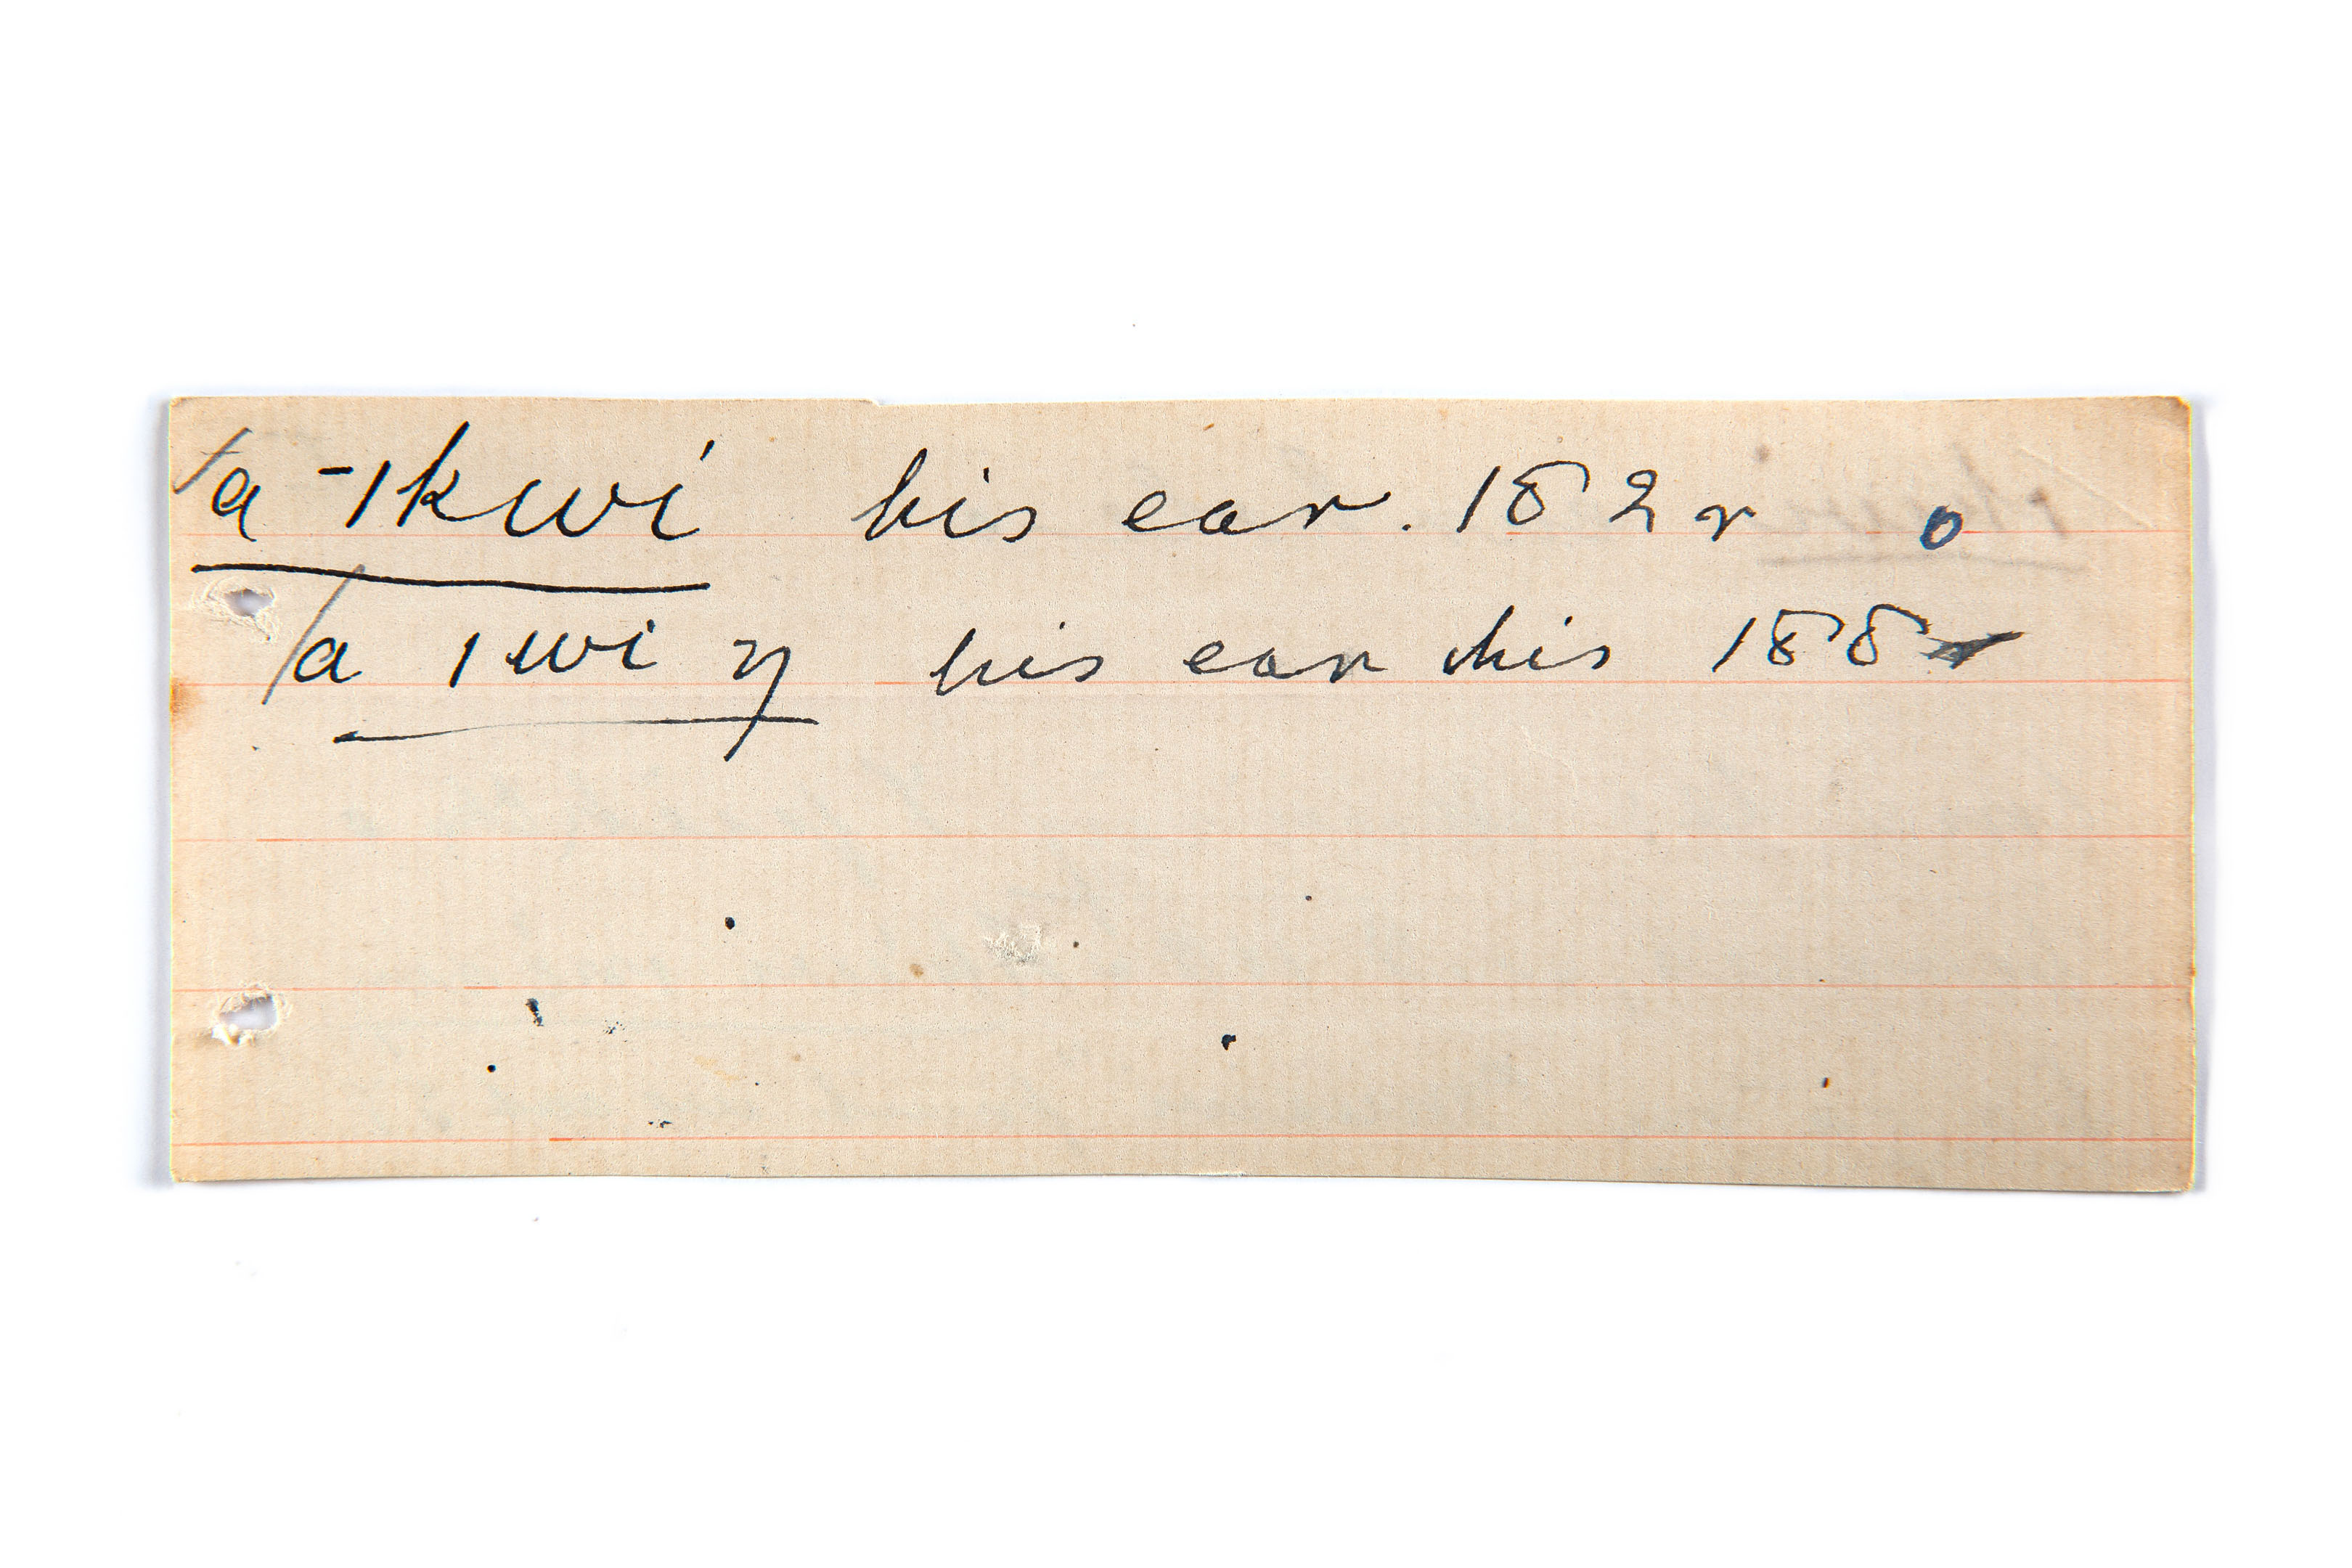 /a -ıkwi his ear. 182 r o
/a ıwi η his ear his 188